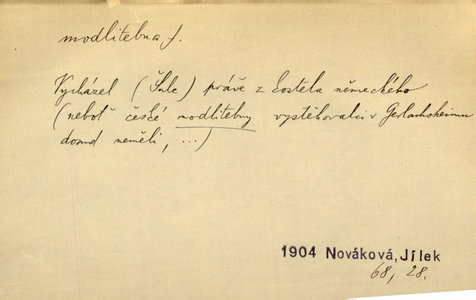 modlitebna f.
Vycházel (Šulc) právě z kostela německého
(neboť české modlitebny vystěhovalci v Gerlachsheimu
dosud neměli, ...)
1904 Nováková, Jílek
68, 28.